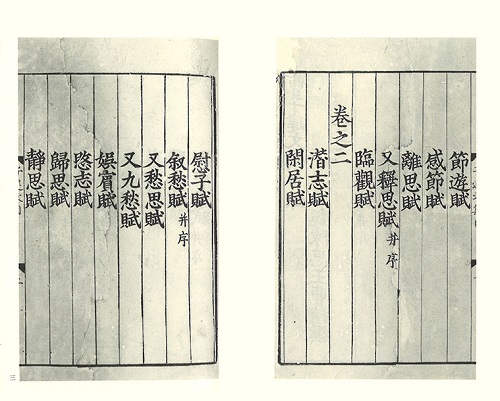 節遊賦
感節賦
離思賦
又釋思賦 并序
臨觀賦
卷之二
潜志賦
閑居賦
慰子賦
叙愁賦 并序
又愁思賦
又九愁賦
娛賓賦
愍志賦
歸思賦
靜思賦